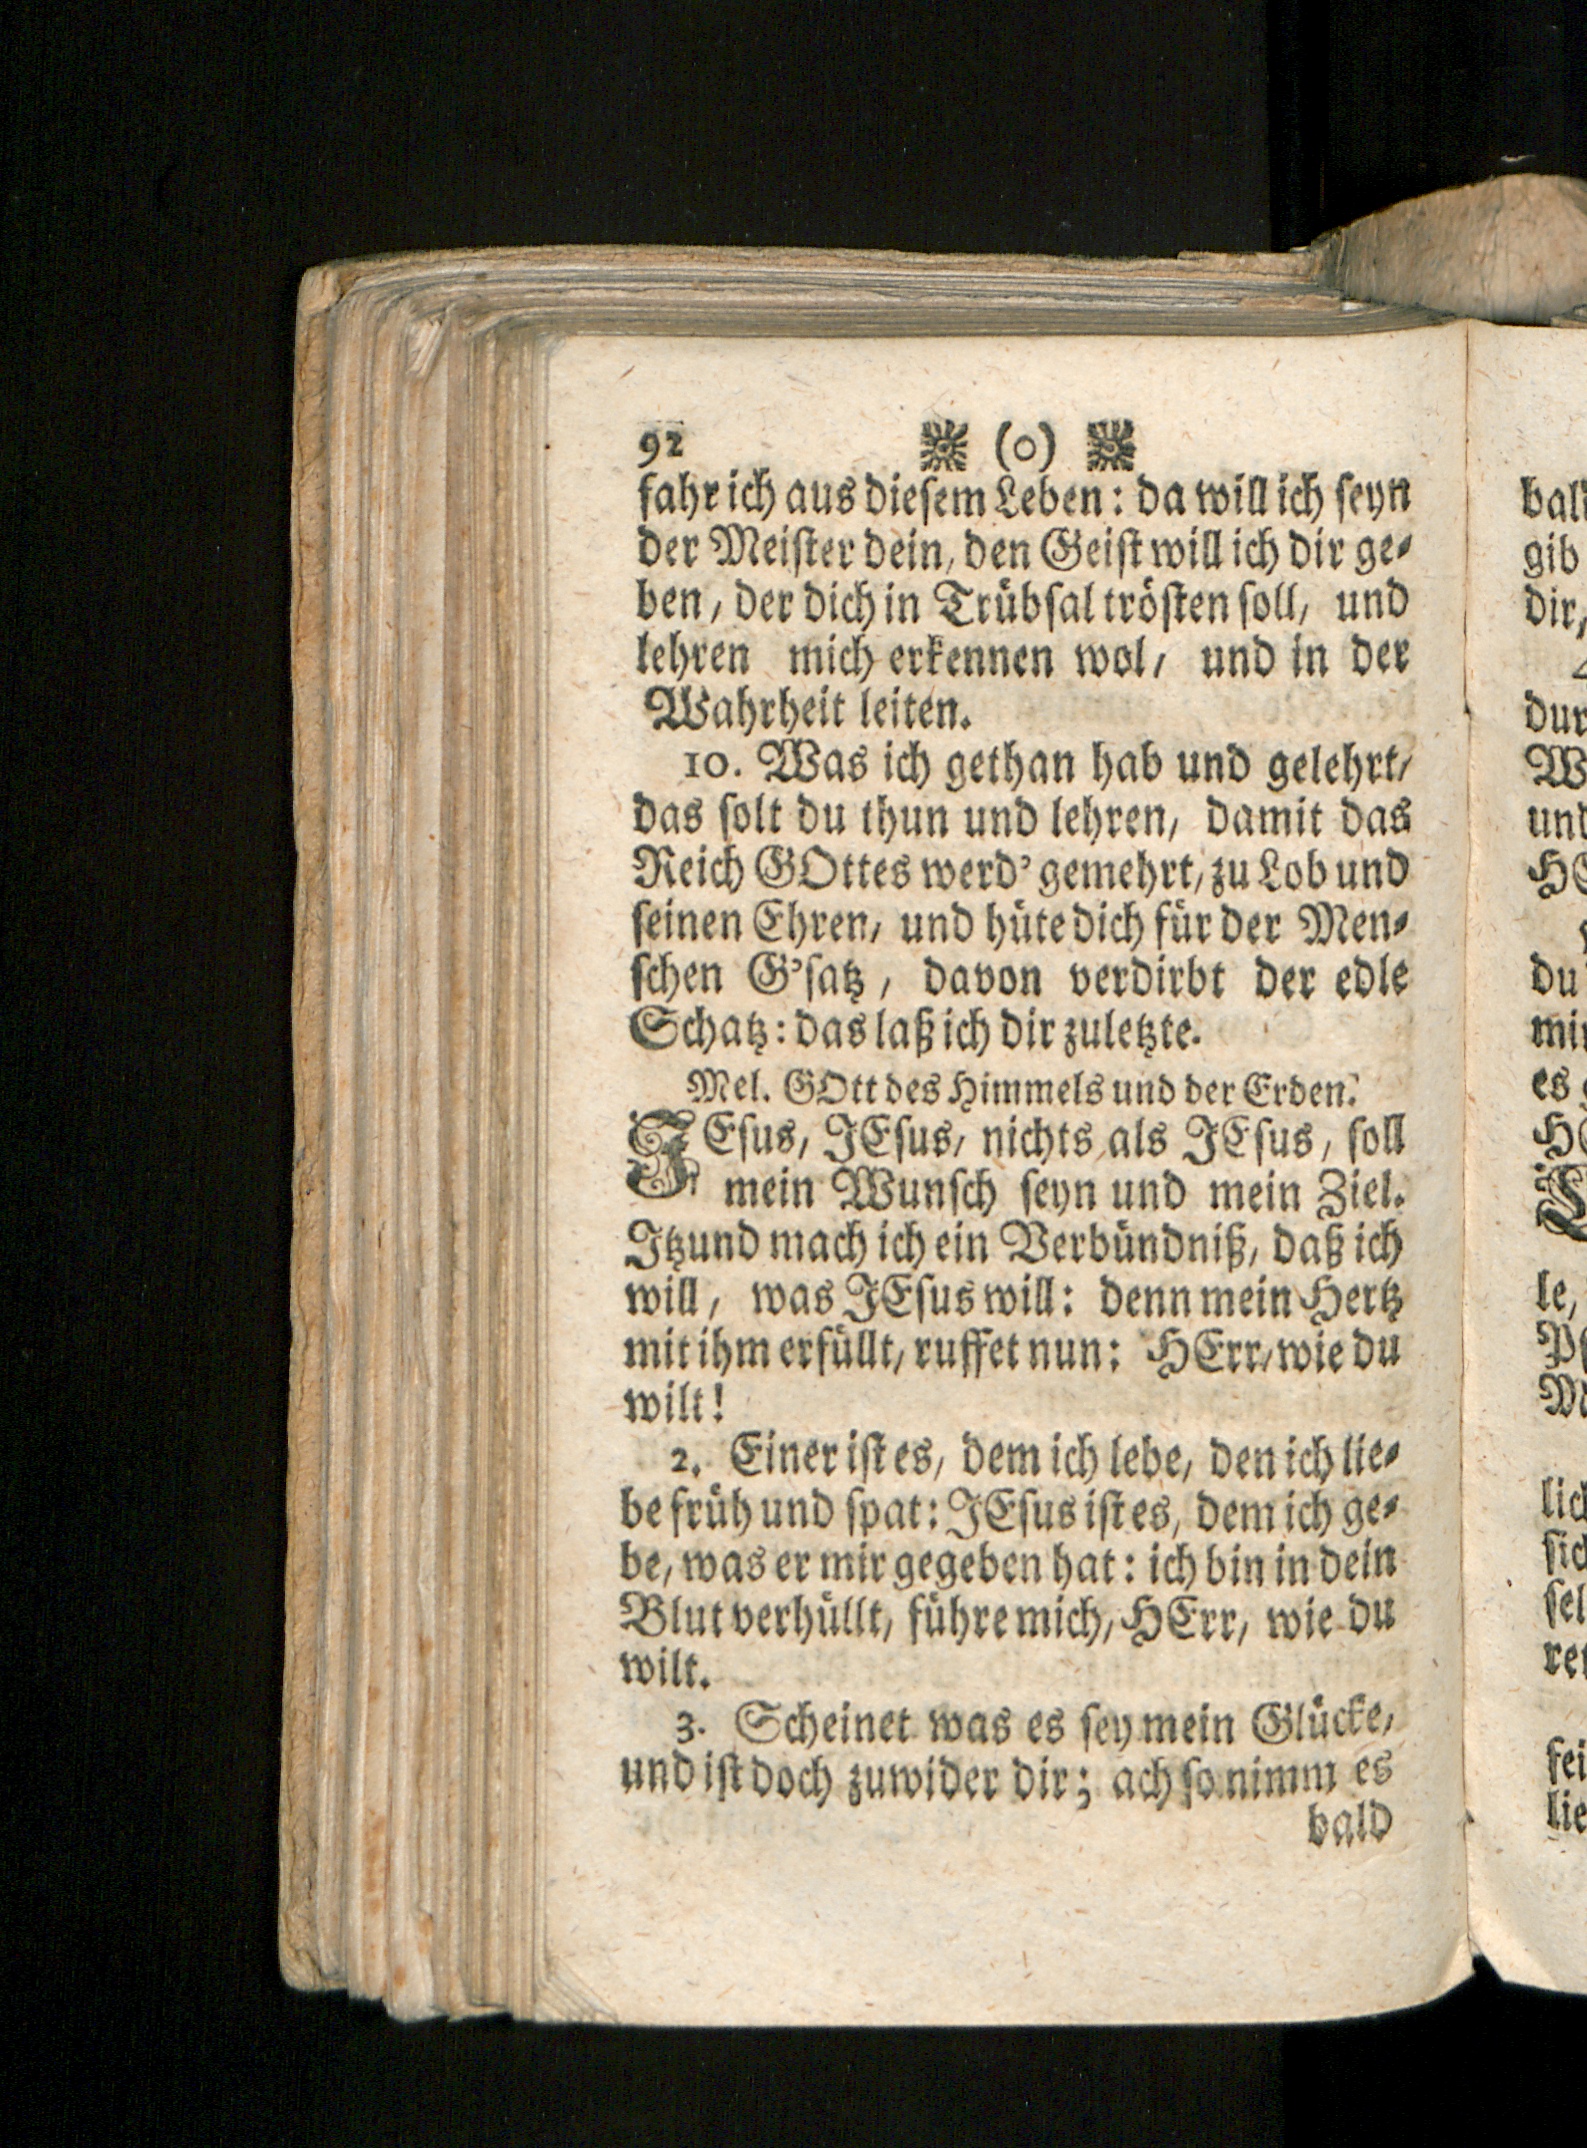 92 (o)
fahr ich aus diesem Leben: da will ich seyn
der Meister dein, den Geist will ich dir ge-
ben, der dich in Trübsal trösten soll, und
lehren mich erkennen wol, und in der
Wahrheit leiten.
10. Was ich gethan hab und gelehrt,
das solt du thun und lehren, damit das
Reich GOttes werd' gemehrt, zu Lob und
seinen Ehren, und hüte dich für der Men-
schen G'satz, davon verdirbt der edle
Schatz: das laß ich dir zuletzte.
Mel. GOtt des Himmels und der Erden.
JEsus, JEsus, nichts als JEsus, soll
mein Wunsch seyn und mein Ziel.
Jtzund mach ich ein Verbündniß, daß ich
will, was JEsus will: denn mein Hertz
mit ihm erfüllt, ruffet nun: HErr, wie du
wilt!
2. Einer ist es, dem ich lebe, den ich lie-
be früh und spat: JEsus ist es, dem ich ge-
be, was er mir gegeben hat: ich bin in dein
Blut verhüllt, führe mich, HErr, wie du
wilt.
3. Scheinet was es sey mein Glücke,
und ist doch zuwider dir; ach so nimm es
bald
gib
dir,
und
du
es
le,